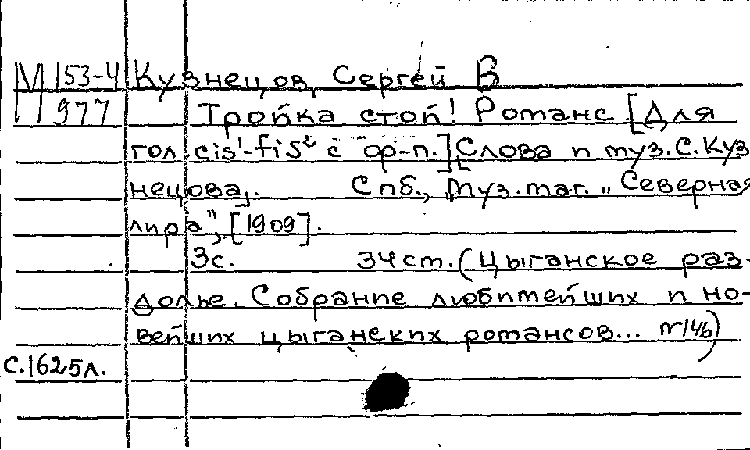 М 153-4 Кузнецов, Сергей В
977 Тройка стой! Романс [Для
гол. cis¹-fis² с ор-п.] [Слова и муз. С. Куз
нецова]. Спб., Муз. маг. „Северная
лира", [1909].
3с. 34 ст. (Цыганское раз-
долье. Собрание любимейших и но-
вейших цыганских романсов... №146)
с.1625л.